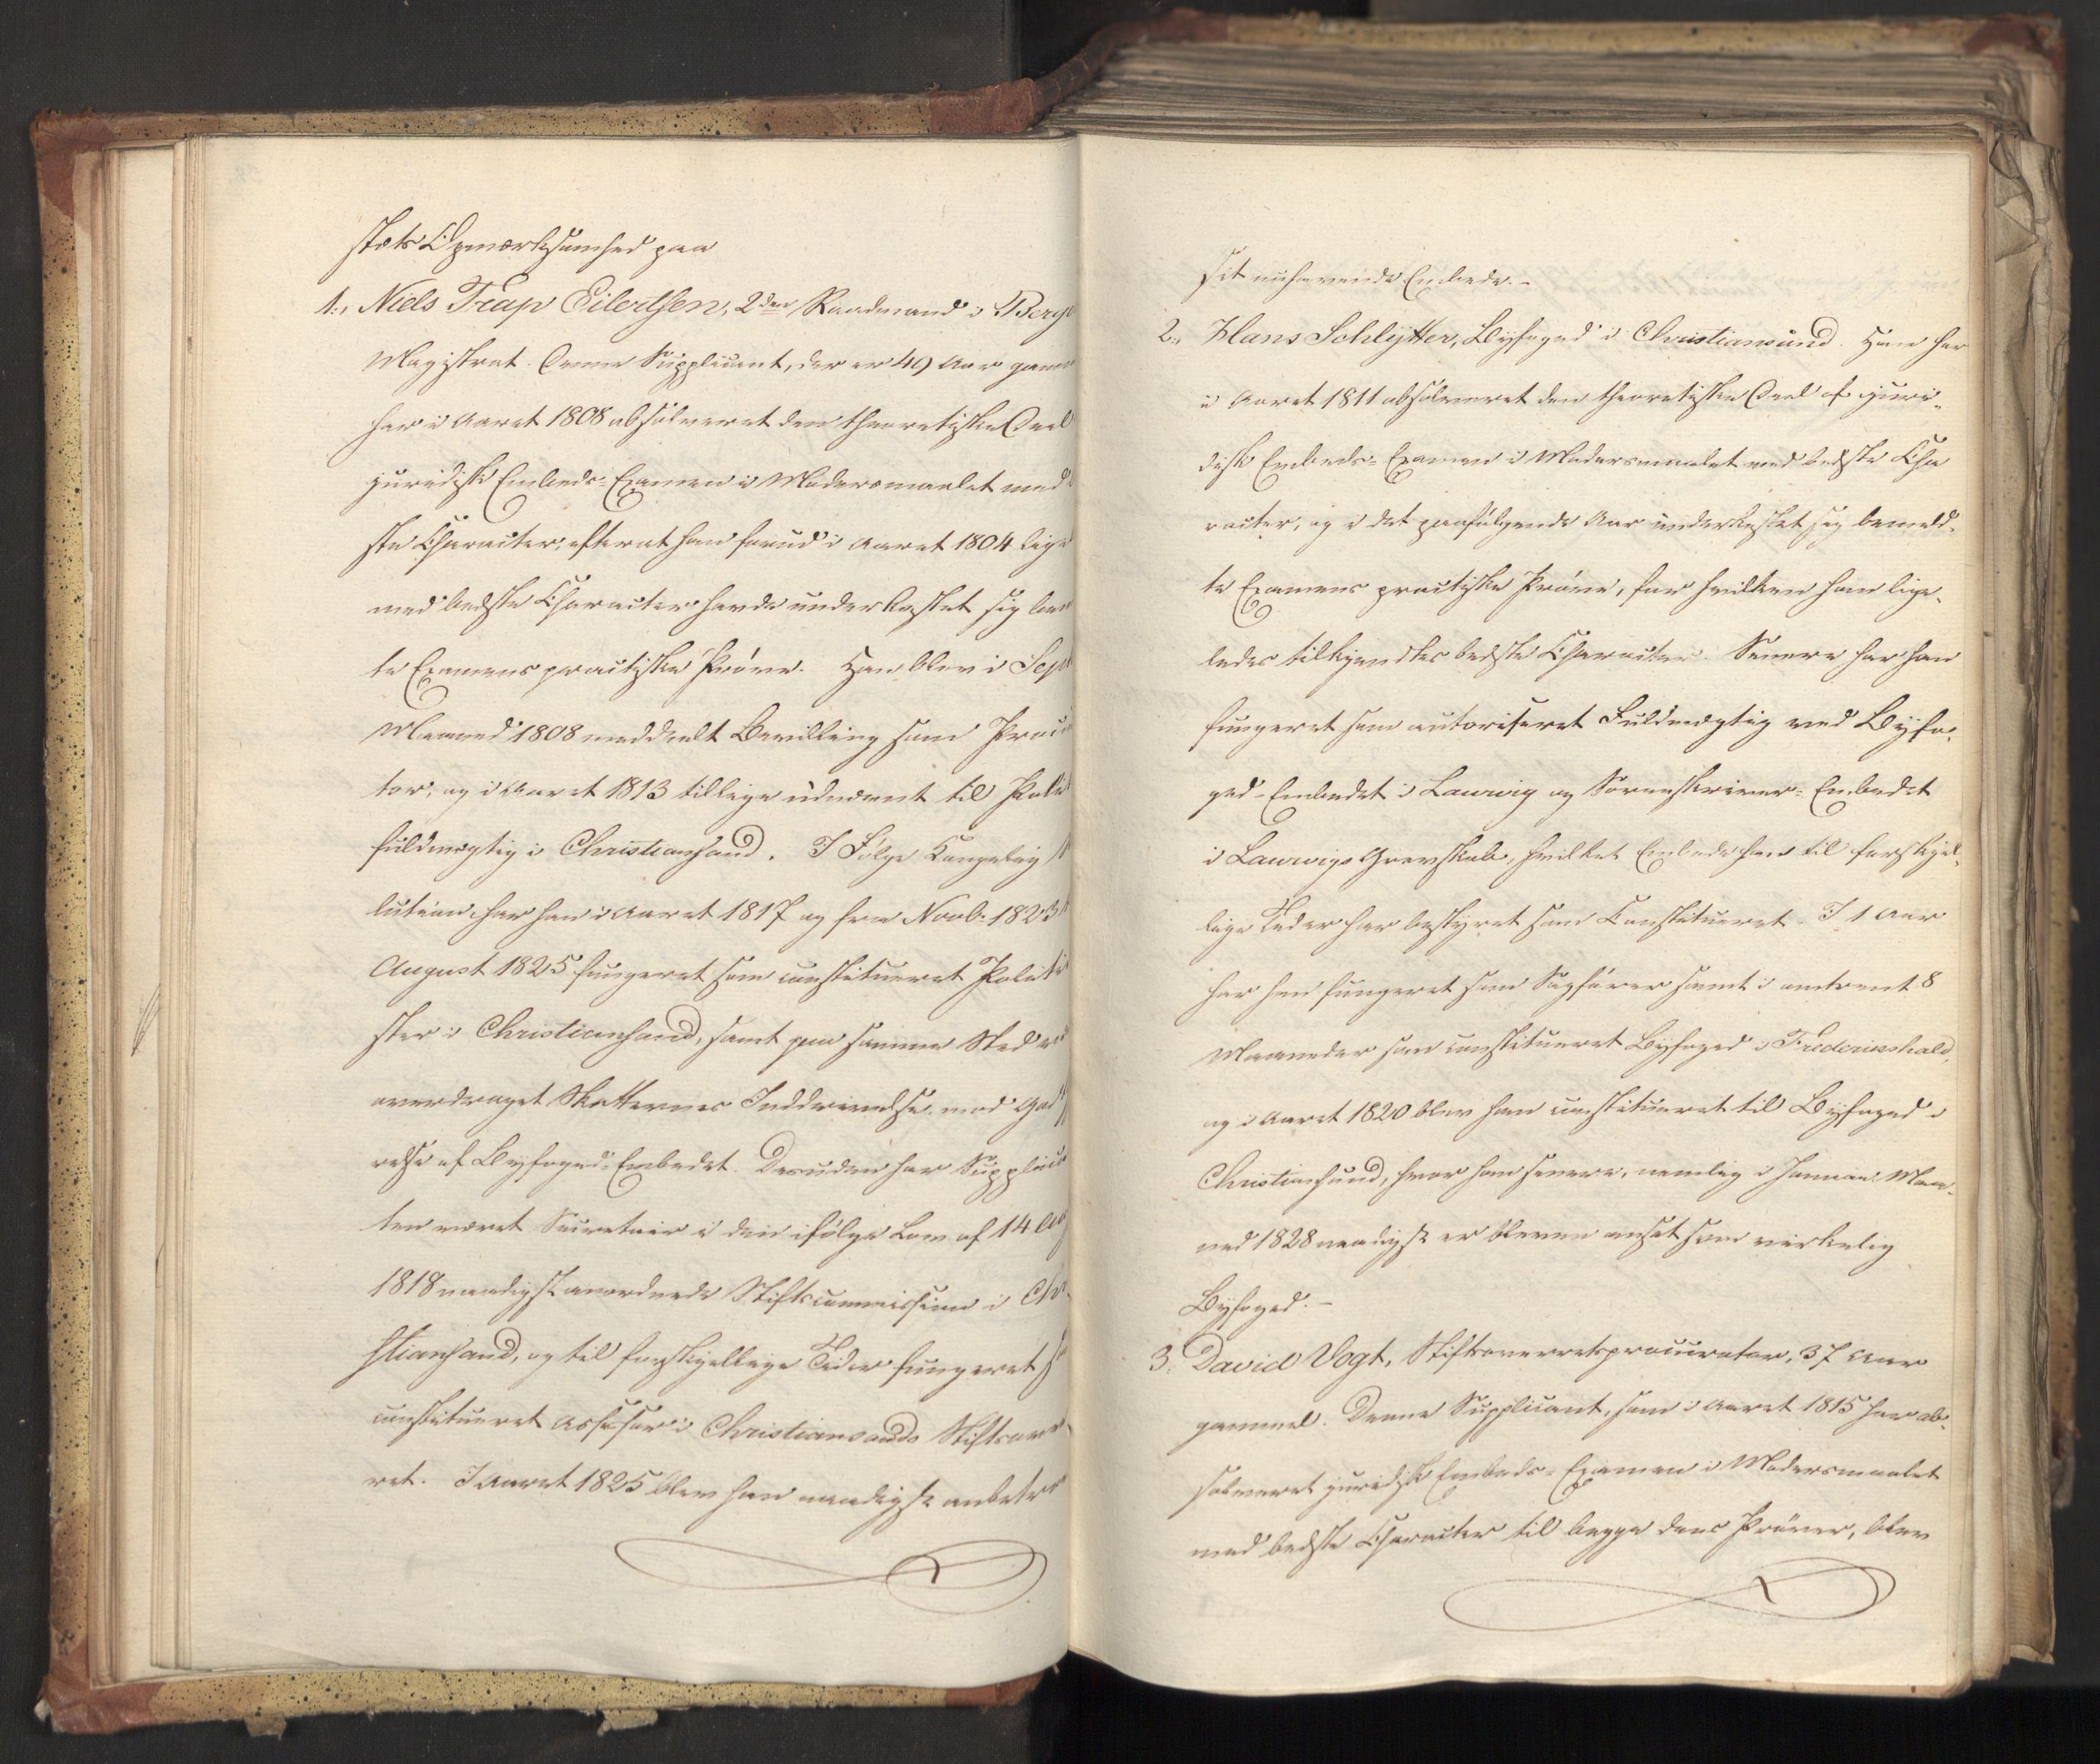 stæts Opmærksomhed paa
1., Niels Trap Eilertsen, 2den Raadmand i Berge
Magistrat. Denne Supplicant, der er 49 Aar gamm
har i Aaret 1808 absolveret den theoretiske Deel
juridisk Embeds-Examen i Modersmaalet med
ste Character, efterat han forud i Aaret 1804 lige
med bedste Character havde underkastet sig bem
te Examens practiske Prøve. Han blev i Sept
Maaned 1808 meddeelt Bevilling som Procu
tor, og i Aaret 1813 tillige udnævnt til Polit
fuldmægtig i Christiansand. I Følge Kongelig
lution har han i Aaret 1817 og fra Novbr 1823
August 1825 fungeret som constitueret Politi
ster i Christiansand, samt paa samme Sted
overdraget Skatternes Inddrivelse med
relse af Byfoged-Embedet. Desuden har Supplican
ten været Secretair i den ifølge Lov af 14 Aug
1818 naadigst anordnede Stiftscommission i Chr
stiansand, og til forskjellige Tider fungeret
constitueret Assessor i Christiansands Stiftsover
ret. I Aaret 1825 blev han naadigst anbetro
sit nuhavende Embede.-
2., Hans Schlytter, Byfoged i Christiansund. Han har
i Aaret 1811 absolveret den theoretiske Deel af juri-
disk Embeds-Examen i Modersmaalet med bedste Cha
racter, og i det paafølgende Aar underkastet sig bemeld-
te Examens practiske Prøve, for hvilken han lige-
ledes tilkjendtes bedste Character. Senere har han
fungeret som autoriseret Fuldmægtig ved Byfo-
ged-Embedet i Laurvig og Sorenskriver-Embedet
i Laurvigs Grevskab, hvilket Embede han til forskjel-
lige Tider har bestyret som Constitueret. I 1 Aar
har han fungeret som Sagfører samt i omtrent 8
Maaneder som constitueret Byfoged i Fredericshald,
og i Aaret 1820 blev han constitueret til Byfoged i
Christiansund, hvor han senere, nemlig i Januar Maa-
ned 1828 naadigst er bleven ansat som virkelig
Byfoged.-
3. David Vogt, Stiftsoverretsprocurator, 37 Aar
gammel. Denne Supplicant, som i Aaret 1815 har ab-
solveret juridisk Embeds-Examen i Modersmaalet
med bedste Character til begge dens Prøver, blev